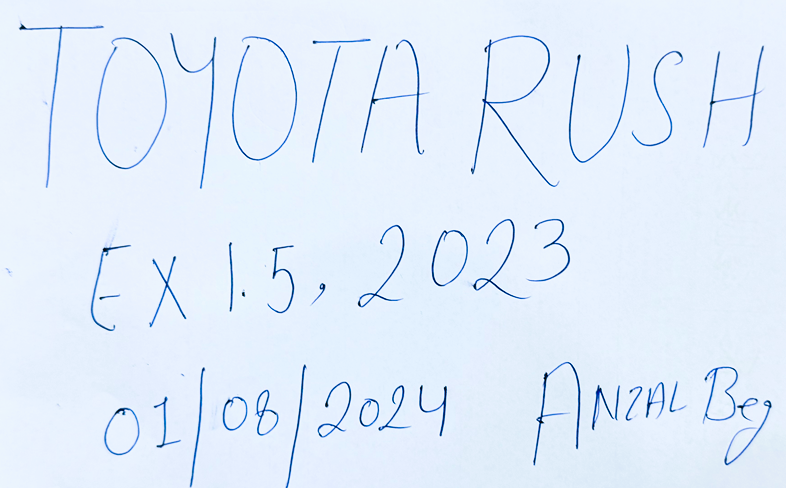 TOYOTA RUSH
EX 1.5, 2023
01/08/2024 ANZAL Beg